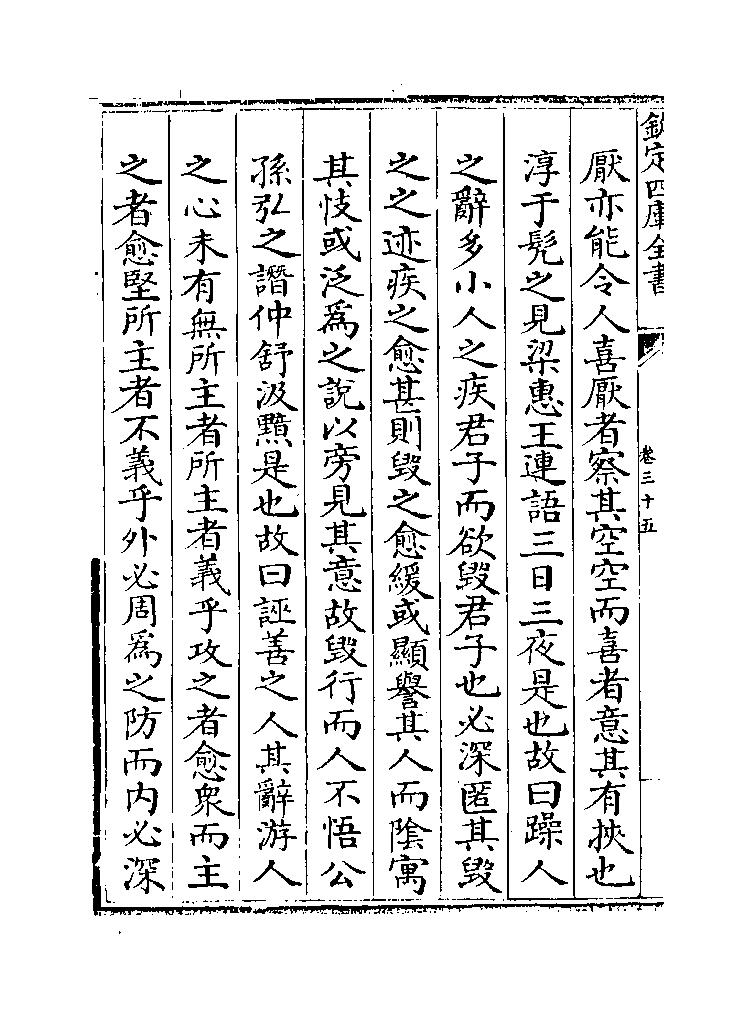 欽定四庫全書
卷三十五
厭亦能令人喜厭者察其空空而喜者意其有挾也
淳于髠之見梁惠王連語三日三夜是也故曰躁人
之辭多小人之疾君子而欲毁君子也必深匿其毁
之之迹疾之愈甚則毁之愈緩或顯譽其人而隂寓
其忮或泛爲之說以旁見其意故毁行而人不悟公
孫弘之譖仲舒汲黯是也故曰誣善之人其辭游人
之心未有無所主者所主者義乎攻之者愈衆而主
之者愈堅所主者不義乎外必周爲之防而内必深